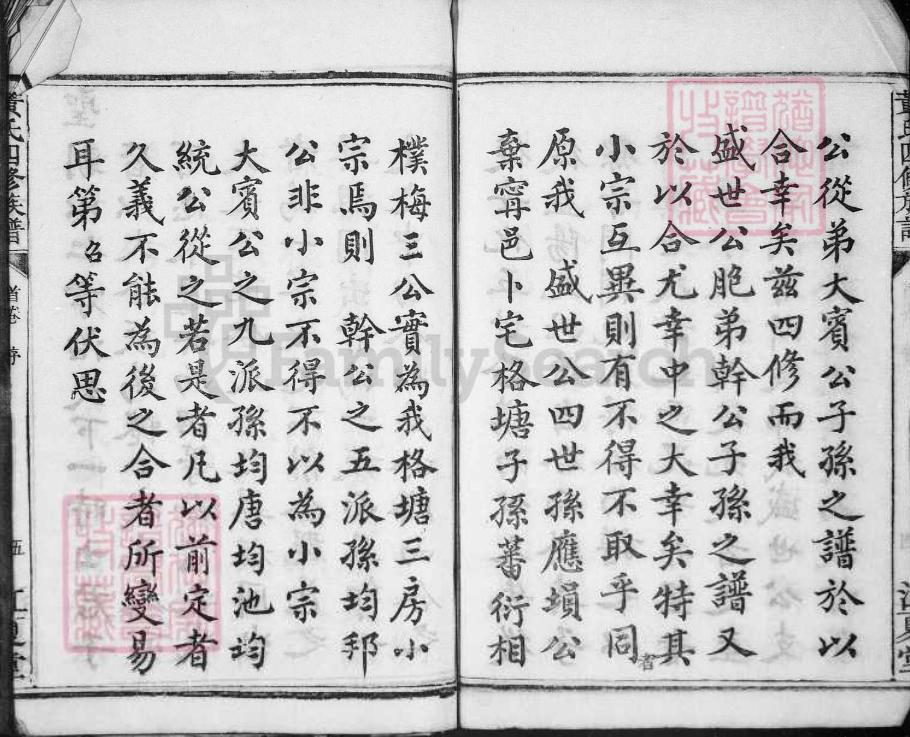 公從弟大賓公子孫之譜於以
合幸矣茲四修而我
盛世公胞弟幹公子孫之譜又
於以合尤幸中之大幸矣特其
小宗互異則有不得不取乎同者
原我 盛世公四世孫應塤公
棄寧邑卜宅格塘子孫蕃衍相
樸梅三公實為我格塘三房小
宗焉則 幹公之五派孫均邦
公非小宗不得不以為小宗
大賓公之九派孫均唐均池均
統公從之若是者凡以前定者
久義不能為後之合者所變易
耳第名等伏思
黃氏四修族譜
首卷 序
五
江夏堂
黃氏四修族譜
江夏堂
FamilySearch